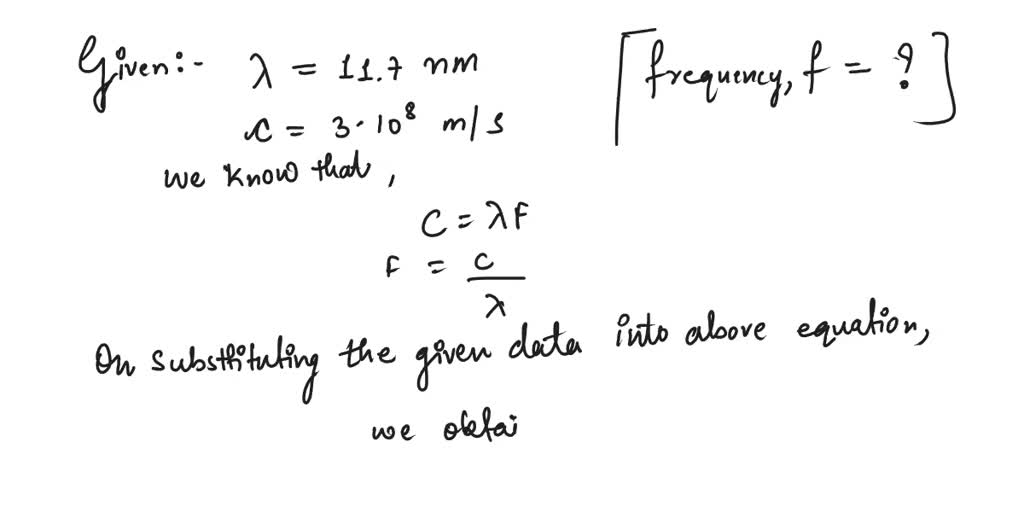 Given:- λ = 11.7 nm
[frequency, f = ?]
c = 3·10⁸ m/s
we know that,
C = λF
F = c/λ
On substituting the given data into above equation,
we obtai